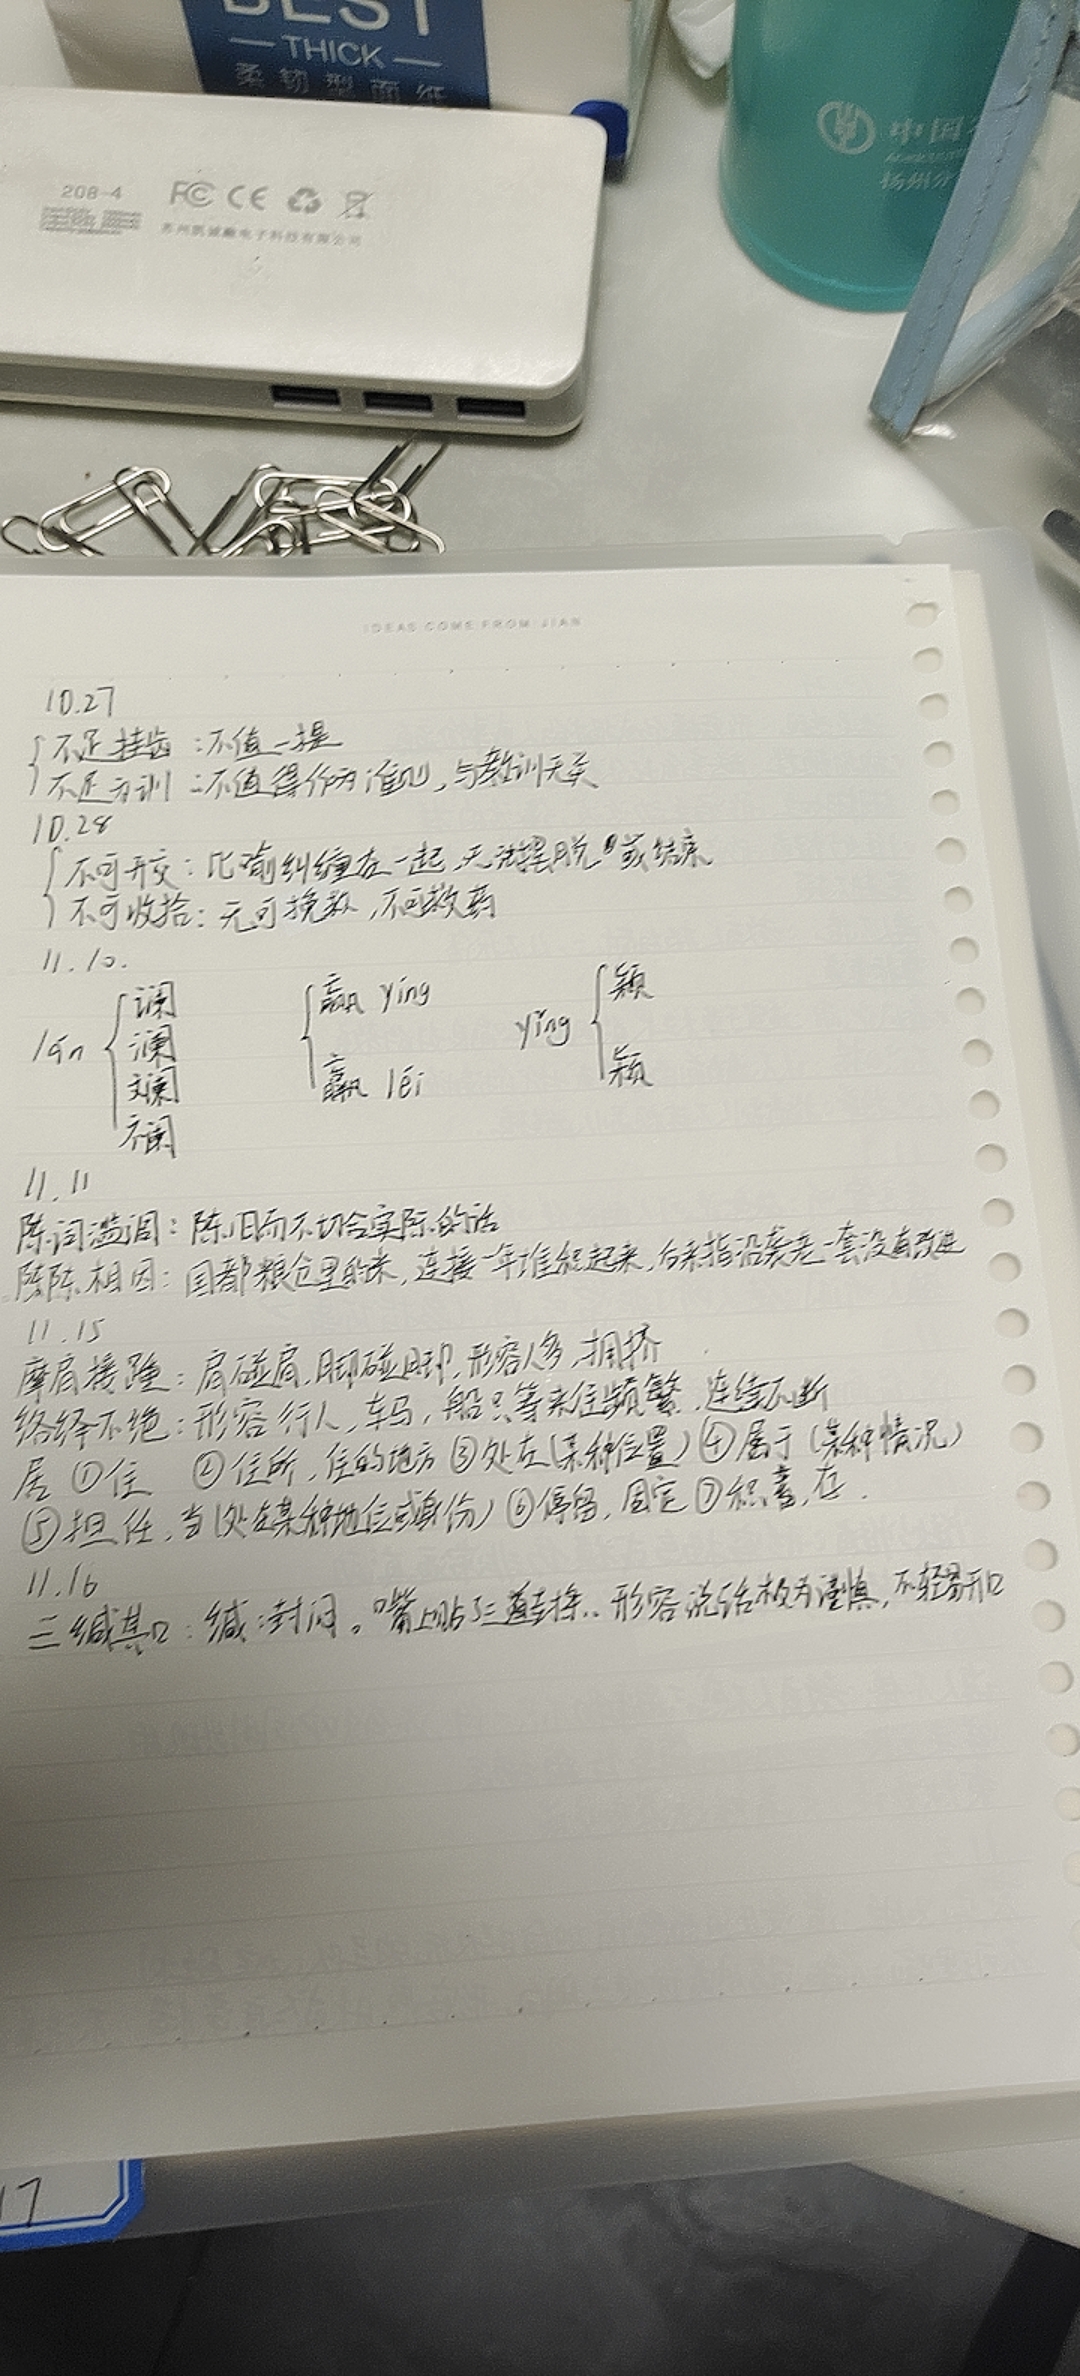 BEST
THICK
柔韧型面纸
208-4
FC CE
苏州凯诚鑫电子科技有限公司
中国
扬州分
IDEAS COME FROM JIAN
10.27
不足挂齿：不值一提
不足为训：不值得作为准则，与教训无关
10.28
不可开交：比喻纠缠在一起，无法摆脱或结束
不可收拾：无可挽救，不可救药
11.10.
lán
谰
澜
斓
赢 yíng
羸 léi
yǐng
颖
颍
11.11
陈词滥调：陈旧而不切合实际的话
陈陈相因：国都粮仓里的米，连接一年堆积起来，后来指沿袭老一套没有改进
11.15
摩肩接踵：肩碰肩，脚碰脚，形容人多，拥挤
络绎不绝：形容行人，车马，船只等来往频繁，连续不断
居 ①住 ②住所，住的地方 ③处在（某种位置） ④属于（某种情况）
⑤担任，当（处在某种地位或身份） ⑥停留，固定 ⑦积蓄，存.
11.16
三缄其口：缄：封闭。嘴上贴了三道封条.. 形容说话极为谨慎，不轻易开口
17